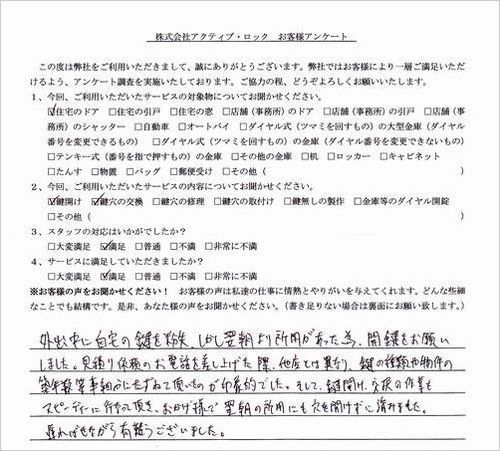 株式会社アクティブ・ロック　お客様アンケート
この度は弊社をご利用いただきまして、誠にありがとうございます。弊社ではお客様により一層ご満足いただ
けるよう、アンケート調査を実施いたしております。ご協力の程、どうぞよろしくお願いいたします。
1、今回、ご利用いただいたサービスの対象物についてお聞かせください。
☑住宅のドア　□住宅の引戸　□住宅の窓　□店舗（事務所）のドア　□店舗（事務所）の引戸　□店舗（事
務所）のシャッター　□自動車　□オートバイ　□ダイヤル式（ツマミを回すもの）の大型金庫（ダイヤル
番号を変更できるもの）　□ダイヤル式（ツマミを回すもの）の金庫（ダイヤル番号を変更できないもの）
□テンキー式（番号を指で押すもの）の金庫　□その他の金庫　□机　□ロッカー　□キャビネット
□たんす　□物置　□バッグ　□郵便受け　□その他（　　　　　　　　　　）
2、今回、ご利用いただいたサービスの内容についてお聞かせください。
☑鍵開け　☑鍵穴の交換　□鍵穴の修理　□鍵穴の取付け　□鍵無しの製作　□金庫等のダイヤル開錠
□その他（　　　　　　　　　　）
3、スタッフの対応はいかがでしたか？
□大変満足　☑満足　□普通　□不満　□非常に不満
4、サービスに満足していただきましたか？
□大変満足　☑満足　□普通　□不満　□非常に不満
※お客様の声をお聞かせください！　お客様の声は私達の仕事に情熱とやりがいを与えてくれます。どんな些細
なことでも結構です。是非、あなた様の声をお聞かせください。（書き足りない場合は裏面にお願い致します。）
外出中に自宅の鍵を紛失、しかし翌朝より所用があった為、開鍵をお願い
しました。見積り依頼のお電話を差し上げた際、他店とは異なり、鍵の種類や物件の
築年数等事細かにたずねて頂いたのが印象的でした。そして、鍵開け、交換の作業も
スピーディーに行なって頂き、おかげ様で翌朝の所用にも穴を開けずに済みました。
遅ればせながら有難うございました。